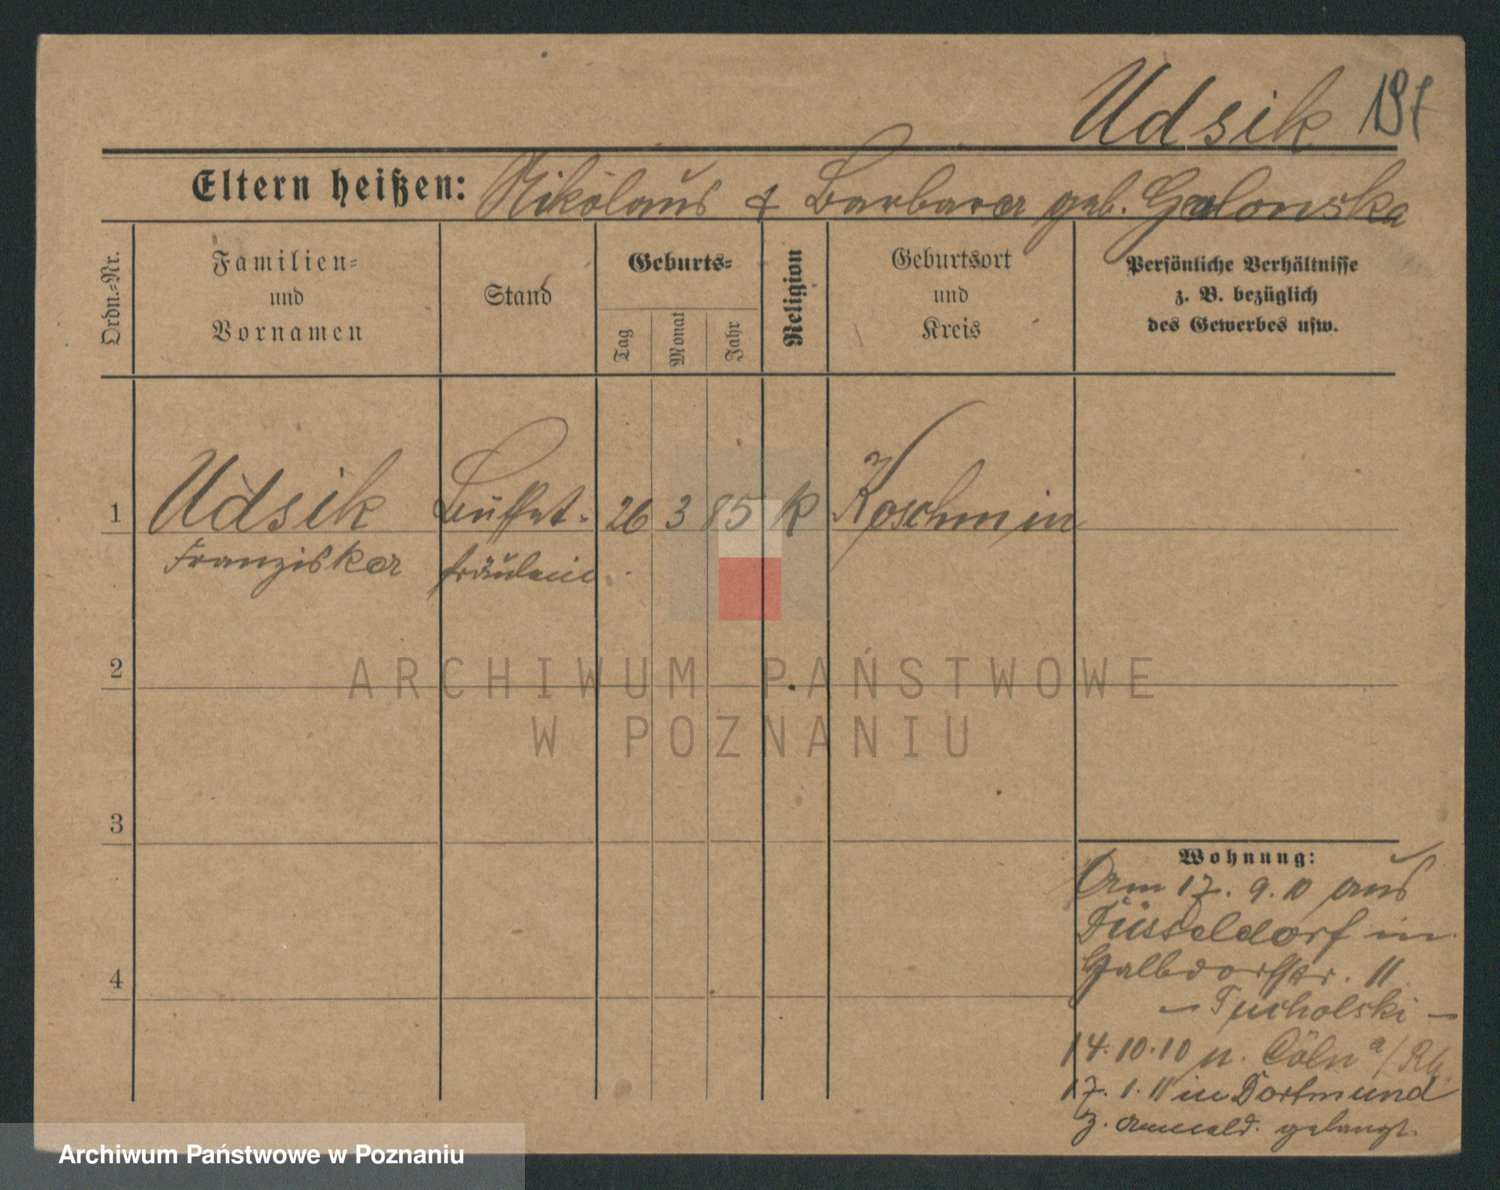 Udsik 197
Eltern heißen: Nikolaus & Barbara geb. Galonska
Ordn.-Nr.
Familien-
und
Vornamen
Stand
Geburts-
Tag
Monat
Jahr
Religion
Geburtsort
und
Kreis
Persönliche Verhältnisse
z. B. bezüglich
des Gewerbes usw.
1 Udsik Büffet- 26 3 85 k Koschmin
Franziska fräulein
2
ARCHIWUM PAŃSTWOWE
W POZNANIU
3
4
Wohnung:
Am 17. 9. 10 aus
Düsseldorf in
11
- Tucholski -
14.10.10 n. Cöln a/Rh.
17. 1. 11 in Dortmund
z. Anmeld. gelangt.
Archiwum Państwowe w Poznaniu